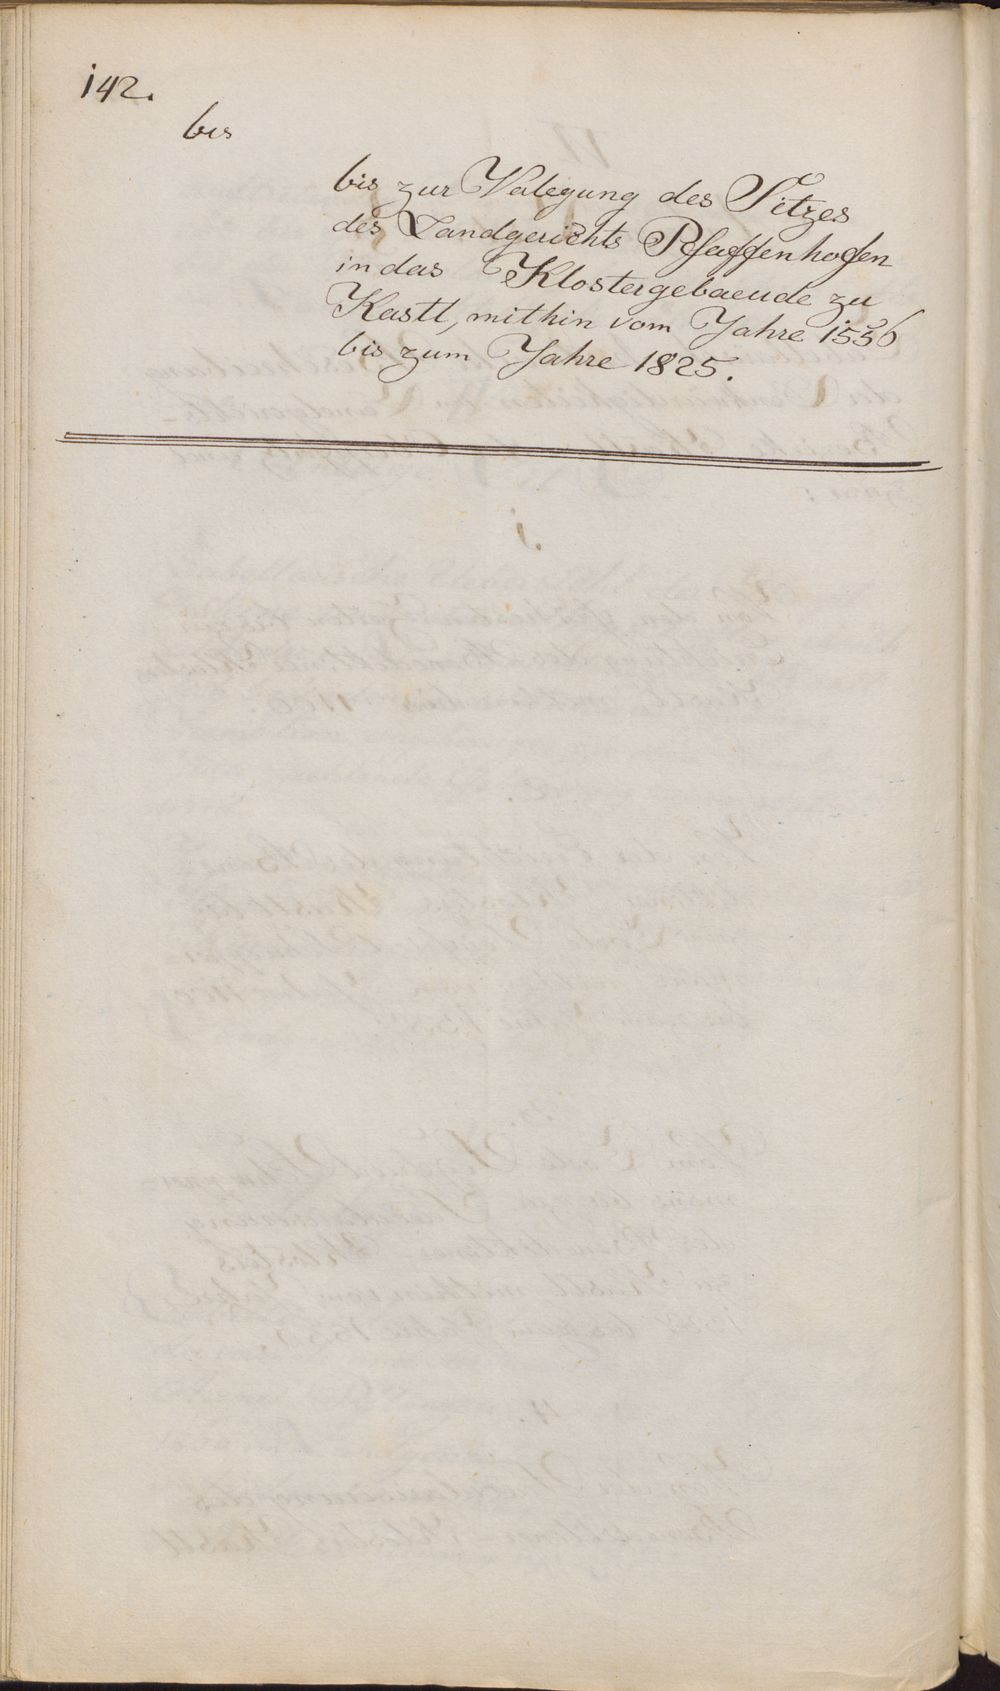 142.
bis
bis zur Verlegung des Sitzes
des Landgerichts Pfaffenhofen
in das Klostergebaeude zu
Kastl, mithin vom Jahre 1556
bis zum Jahre 1825.